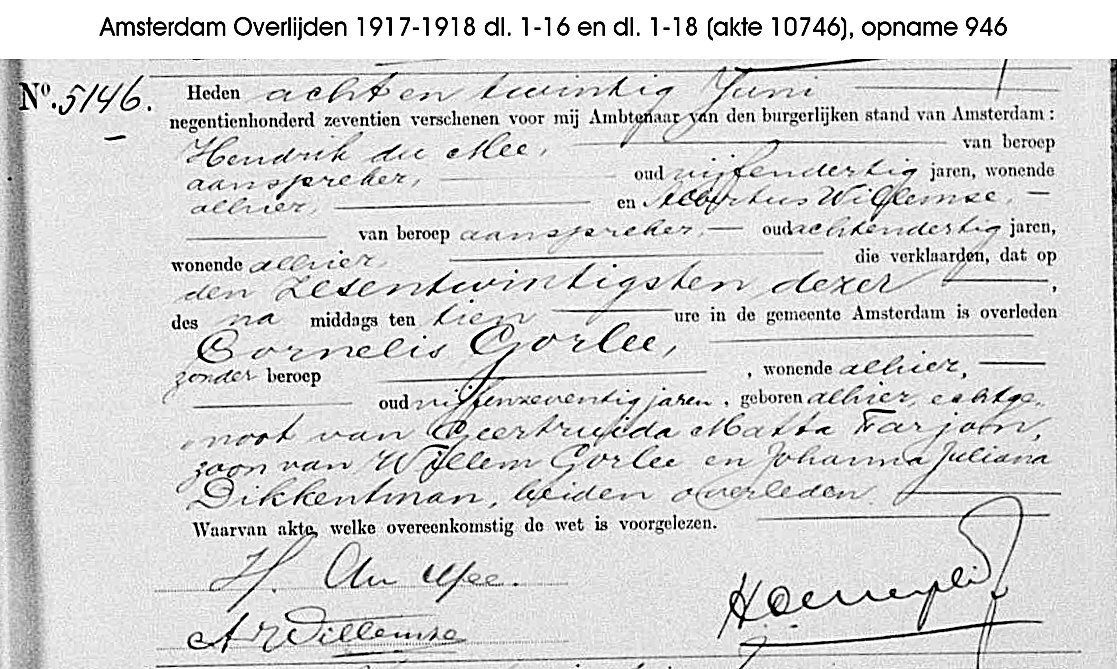 Amsterdam Overlijden 1917-1918 dl. 1-16 en dl. 1-18 (akte 10746), opname 946
No. 5146. Heden acht en twintig Juni
negentienhonderd zeventien verschenen voor mij Ambtenaar van den burgerlijken stand van Amsterdam:
Hendrik du Mee, van beroep
aanspreker, oud vijfendertig jaren, wonende
alhier, en Albertus Willemse,
van beroep aanspreker, oud achtendertig jaren,
wonende alhier, die verklaarden, dat op
den zesentwintigsten dezer,
des na middags ten tien ure in de gemeente Amsterdam is overleden
Cornelis Gorlee,
zonder beroep, wonende alhier,
oud vijfenzeventig jaren, geboren alhier, echtge-
noot van Geertruida Matta Farjon,
zoon van Willem Gorlee en Johanna Juliana
Dikkentman, beiden overleden.
Waarvan akte, welke overeenkomstig de wet is voorgelezen.
H. du Mee.
A Willemse